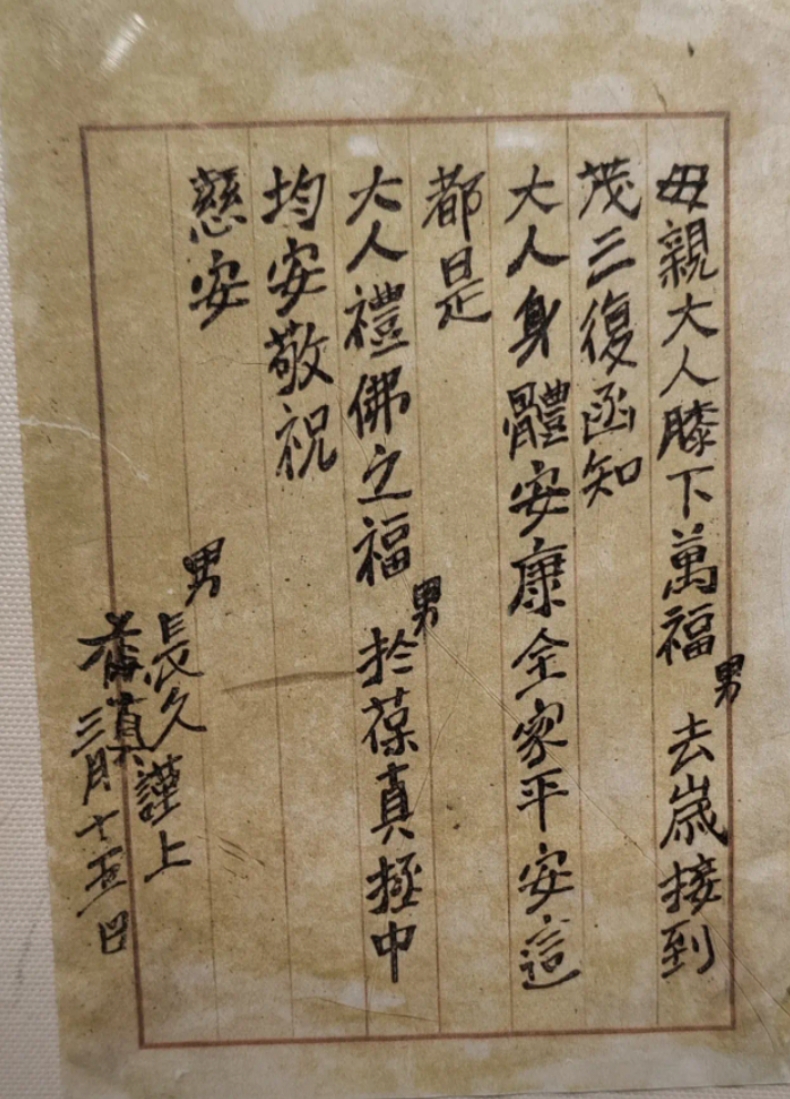 母親大人膝下萬福男去歲接到
茂三復函知
大人身體安康全家平安這
都是
大人禮佛之福男於葆真極中
均安敬祝
慈安
男長久謹上
真三月十五日